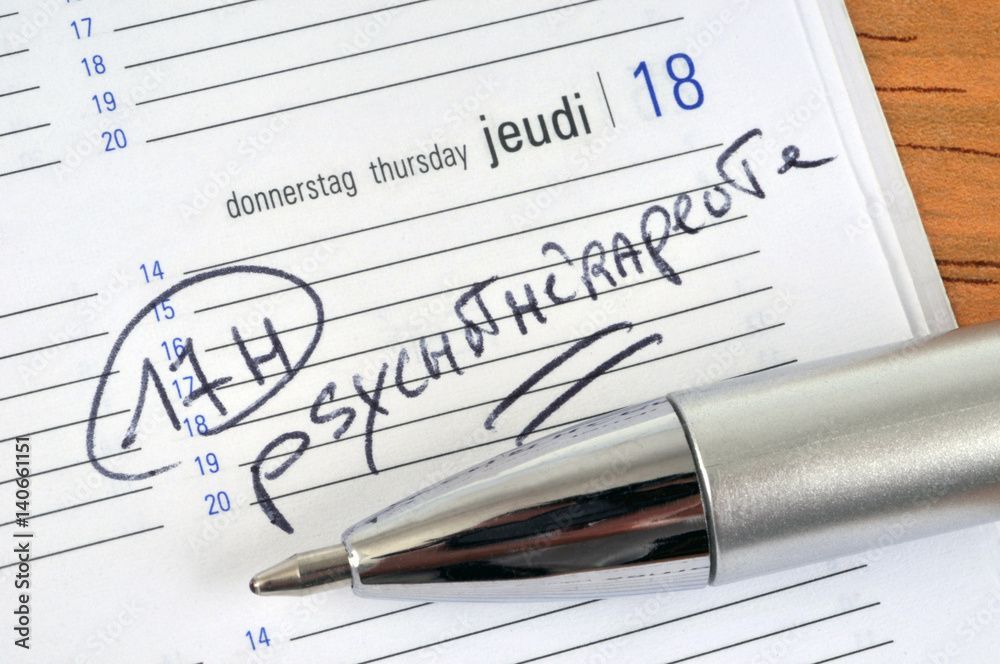 17
18
19
20
donnerstag thursday jeudi 18
14
15
16
17
18
19
20
17H
psychothérapeute
14
Adobe Stock | #140661151